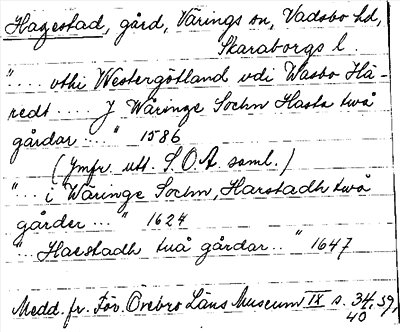 Hagestad, gård, Värings sn, Vadsbo hd,
Skaraborgs l.
".... vthi Westergötland vdi Wasbo Hä-
redt .... J Wäringe Sochn Hasta två
gårdar ..." 1586
(Jmfr. utt. S.O.A. saml.)
"... i Wäringe Sochn, Harstadh två
gårder ..." 1624
".. Haestadh två gårdar .." 1647
Medd. fr. För. Örebro Läns Museum IX s. 34, 39,
40